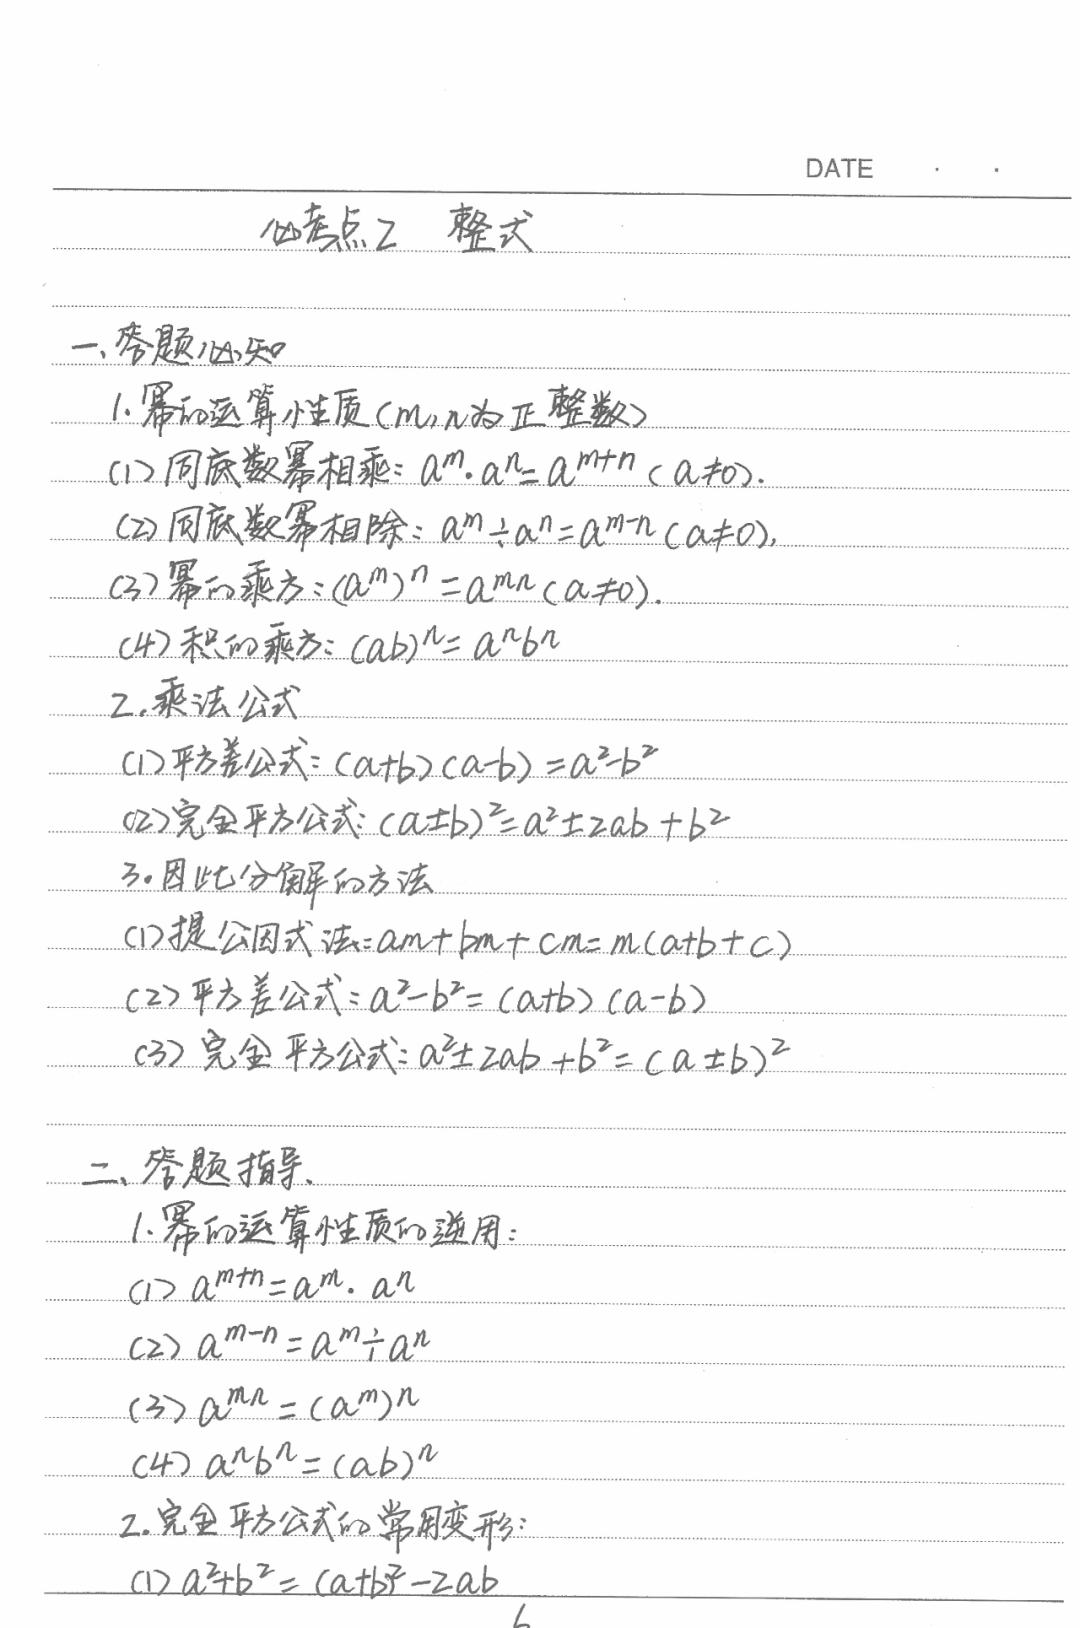 DATE · ·
必考点2 整式
一、答题必知
1.幂的运算性质(m,n为正整数)
(1)同底数幂相乘:aᵐ·aⁿ=aᵐ⁺ⁿ(a≠0).
(2)同底数幂相除:aᵐ÷aⁿ=aᵐ⁻ⁿ(a≠0),
(3)幂的乘方:(aᵐ)ⁿ=aᵐⁿ(a≠0).
(4)积的乘方:(ab)ⁿ=aⁿbⁿ
2.乘法公式
(1)平方差公式:(a+b)(a-b)=a²-b²
(2)完全平方公式:(a±b)²=a²±2ab+b²
3.因此分解的方法
(1)提公因式法:am+bm+cm=m(a+b+c)
(2)平方差公式:a²-b²=(a+b)(a-b)
(3)完全平方公式:a²±2ab+b²=(a±b)²
二、答题指导.
1.幂的运算性质的逆用:
(1)aᵐ⁺ⁿ=aᵐ·aⁿ
(2)aᵐ⁻ⁿ=aᵐ÷aⁿ
(3)aᵐⁿ=(aᵐ)ⁿ
(4)aⁿbⁿ=(ab)ⁿ
2.完全平方公式的常用变形:
(1)a²+b²=(a+b)²-2ab
6